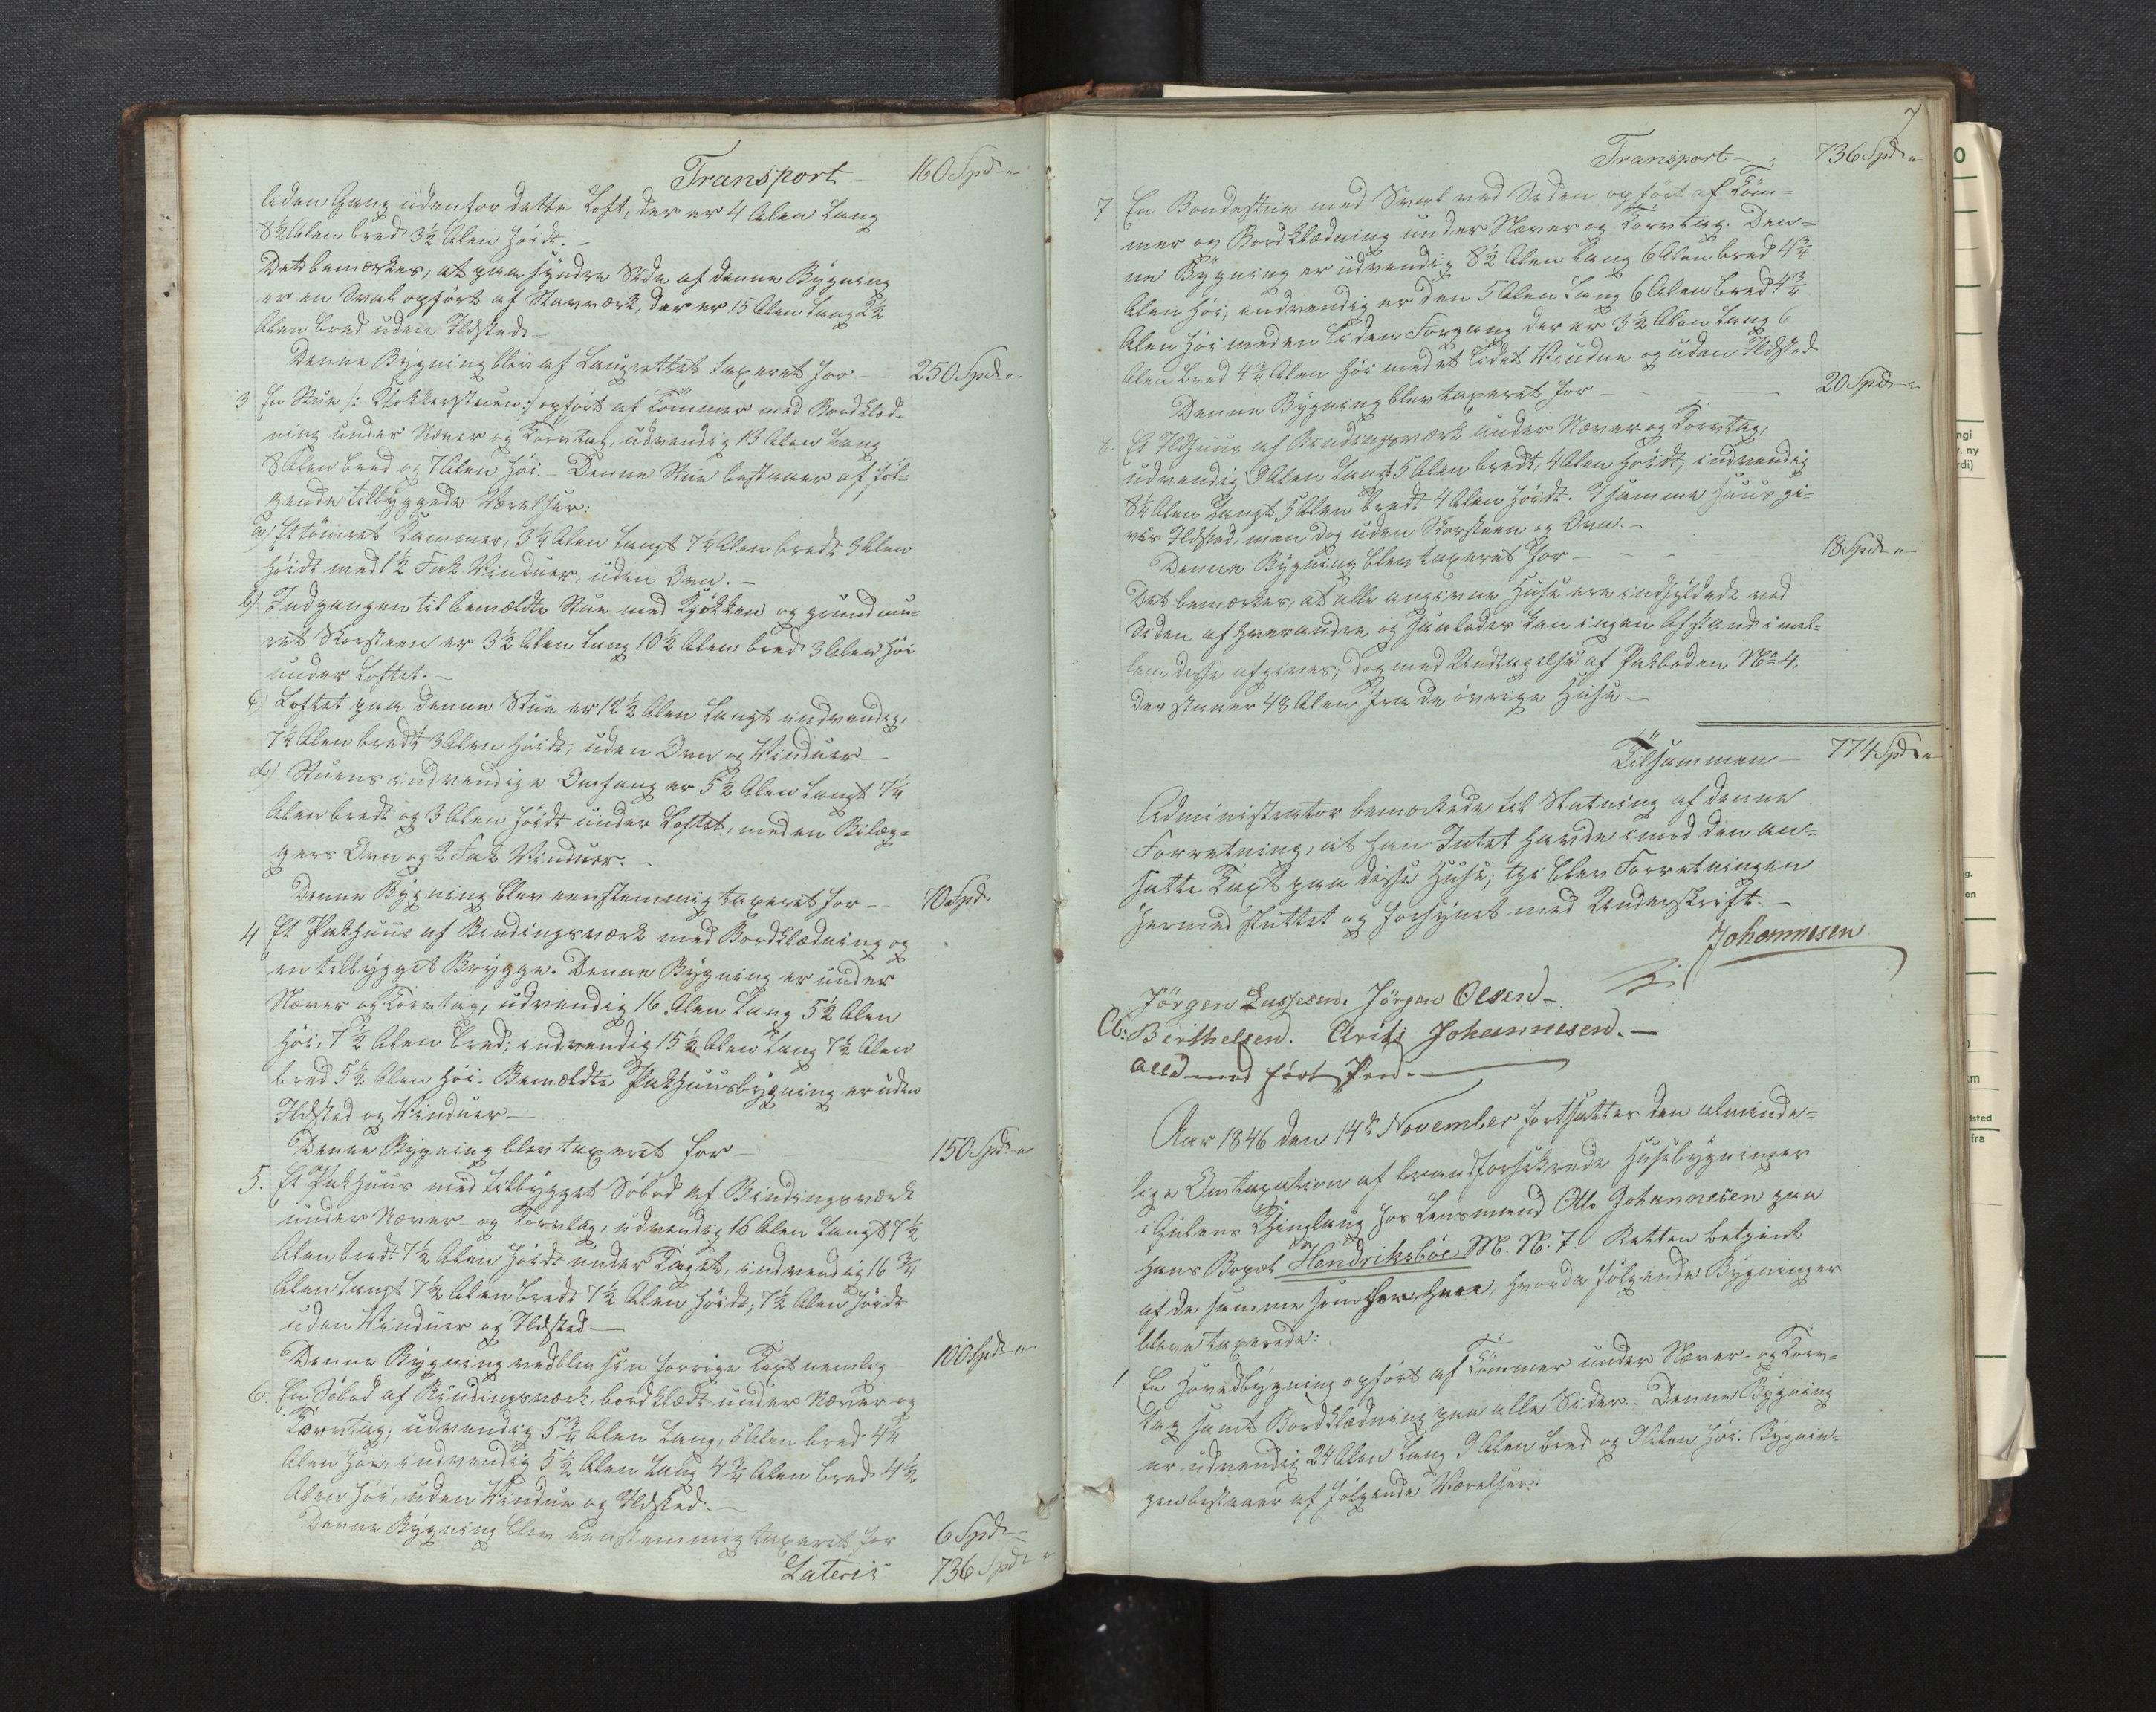 Transport 160 Spd "
liden Gang udenfor dette Loft, der er 4 Alen Lang
8½ Alen bred 3½ Alen høidt. –
Det bemærkes, at paa syndre Side af denne Bygning
er en Sval opført af Stavværk, der er 15 Alen Lang 2½
Alen bred uden Ildsted. –
Denne Bygning blev af Laugrettet taxeret for – 250 Spd "
3 En Stue /: Klokkerstuen :/ opført af Tømmer med Bordklæd-
ning under Næver og Torvtag, udvendig 13 Alen Lang
8 Alen bred og 7 Alen høi. – Denne Stue bestaaer af føl-
gende tilbyggede Værelser:
a) Et tømret Kammer, 3¼ Alen langt 7¼ Alen bredt 3 Alen
høidt med 1½ Fak Vinduer, uden Ovn. –
b) Indgangen til bemældte Stue med Kjøkken og grundmu-
ret Skorsteen er 3½ Alen Lang 10½ Alen bred 3 Alen høi
under Loftet. –
c) Loftet paa denne Stue er 12½ Alen Langt indvendig,
7¼ Alen bredt 3 Alen høidt, uden Ovn og Vinduer –
d) Stuens indvendige Omfang er 5½ Alen Langt 7¼
Alen bredt og 3 Alen høidt under Loftet, med en Bilæg-
gers Ovn og 2 Fak Vinduer. –
Denne Bygning blev eenstemmig taxeret for – 70 Spd
4 Et Pakhuus af Bindingsværk med Bordklædning og
en tilbygget Brygge. Denne Bygning er under
Næver og Torvtag, udvendig 16 Alen Lang 5½ Alen
høi, 7½ Alen bred; indvendig 15½ Alen Lang 7½ Alen
bred 5½ Alen høi. Bemældte Pakhuusbygning er uden
Ildsted og Vinduer –
Denne Bygning blev taxeret for – 150 Spd "
5. Et Pakhuus med tilbygget Søbod af Bindingsværk
under Næver- og Torvtag, udvendig 16 Alen Langt 7½
Alen bredt 7½ Alen høidt under Taget, indvendig 16¾
Alen Langt 7½ Alen bredt 7½ Alen høidt; 7½ Alen høidt
uden Vinduer og Ildsted –
Denne Bygning vedblev sin forrige Taxt nemlig – 100 Spd "
6. En Søbod af Bindingsværk, bordklædt under Næver og
Torvtag, udvendig 5¾ Alen Lang, 5 Alen bred 4¾
Alen høi, indvendig 5½ Alen Lang 4¾ Alen bred 4½
Alen høi, uden Vindue og Ildsted. –
Denne Bygning blev eenstemmig taxeret for 6 Spd –
Lateris 736 Spd "
7
Transport – 736 Spd "
7 En Bondestue med Sval ved Siden opført af Töm-
mer og Bordklædning under Næver og Torvtag. Den-
ne Bygning er udvendig 8½ Alen Lang 6 Alen bred 4¾
Alen høi; indvendig er den 5 Alen Lang 6 Alen bred 4¾
Alen høi med en Liden Forgang der er 3½ Alen Lang 6
Alen bred 4¾ Alen høi med et Lidet Vindue og uden Ildsted
Denne Bygning blev taxeret for – – 20 Spd "
8. Et Ildhuus af Bindingsværk under Næver og Torvtag,
udvendig 9 Alen Langt 5 Alen bredt, 4 Alen høidt, indvendig
8¼ Alen Langt 5 Alen bredt 4 Alen høidt. I samme Huus gi-
ves Ildsted, men dog uden Skorsteen og Ovn. –
Denne Bygning blev taxeret for – – – – 18 Spd "
Det bemærkes, at alle angivne Huse ere indhyldede ved
Siden af hverandre og saaledes kan ingen Afstand imel-
lem disse afgives; dog med Undtagelse af Pakboden No 4,
der staaer 48 Alen fra de øvrige Huse –
Tilsammen – 774 Spd "
Administrator bemærkede til Slutning af denne
Forretning, at han Intet havde imod den an-
satte Taxt paa disse Huse; thi blev Forretningen
hermed sluttet og forsynet med Underskrift. –
Johannesen
Jörgen Lassesen. Jörgen Olsen –
A. Berthelsen. Arils Johannesen. –
alle med ført Pen. –
Aar 1846 den 14de November fortsattes den alminde-
lige Omtaxation af brandforsikrede Husebygninger
i Gulens Thinglaug hos Lensmand Otto Johannesen paa
hans Bopæl Hendriksbøe M. N. 7. Retten betjent
af de samme som før hvor, hvorda følgende Bygninger
bleve taxerede:
1. En Hovedbygning opført af Tømmer under Næver- og Torv-
tag samt Bordklædning paa alle Sider. – Denne Bygning
er udvendig 24 Alen Lang 9 Alen bred og 9 Alen høi. Bygnin-
gen bestaaer af følgende Værelser: